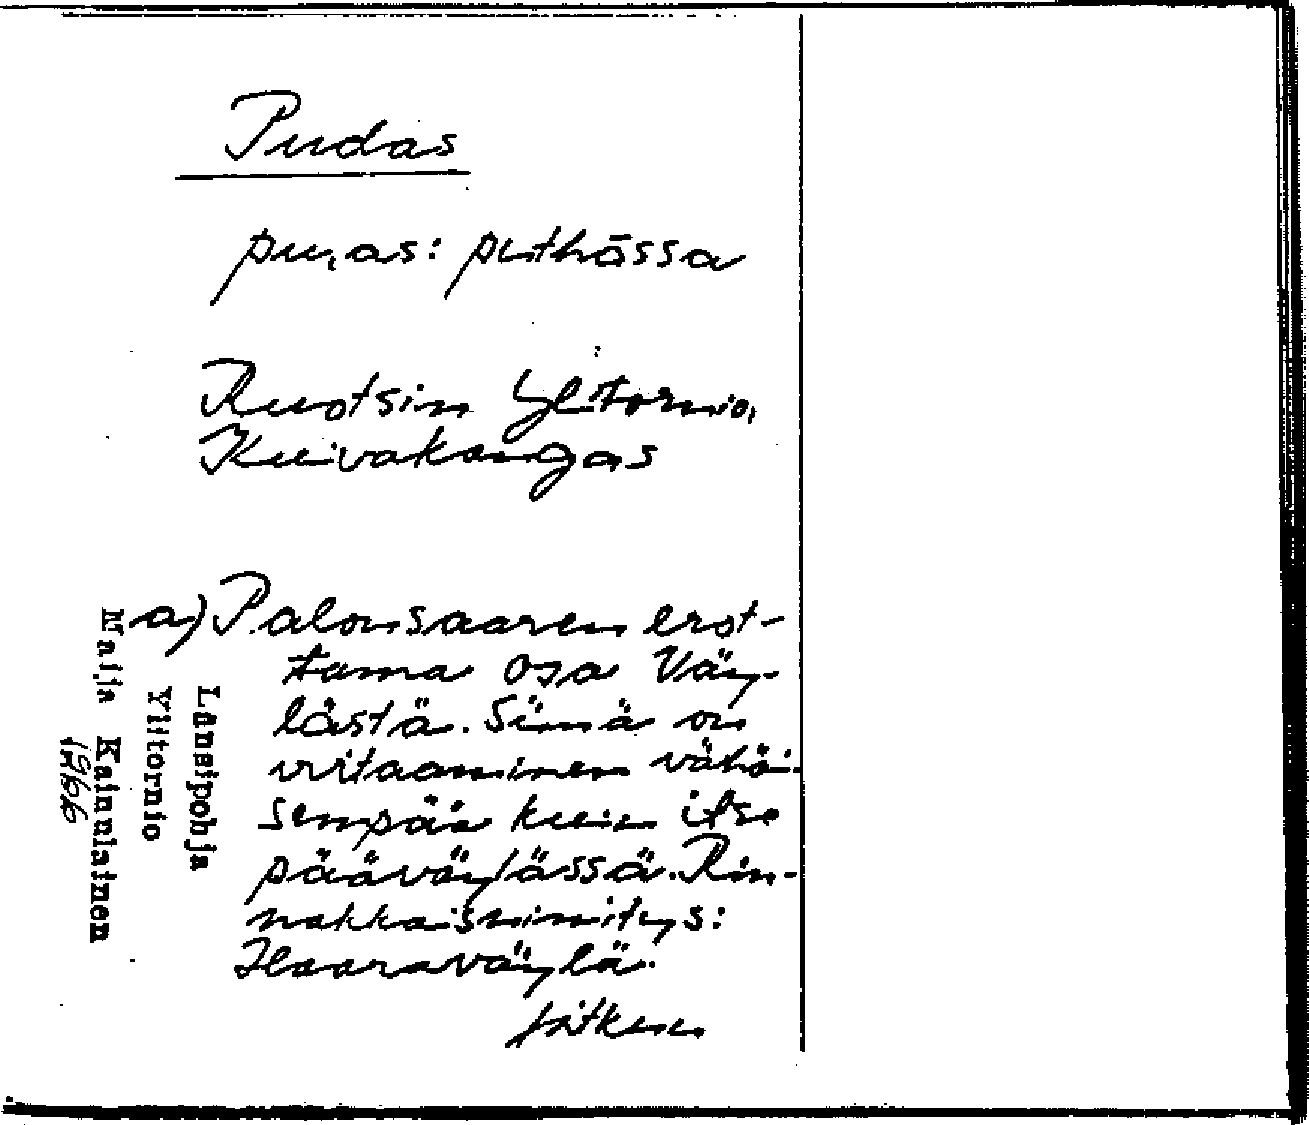 Pudas
pu,as: puthāssa
Ruotsin Ylitornio,
Kuivakangas
a) Palonsaaren erot-
tama osa Väy-
lästä. Siinä on
virtaaminen vähäi-
sempää kuin itse
pääväylässä. Rin-
nakkaisnimitys:
Haaraväylä.
jatkuu
Länsipohja
Ylitornio
Maija Kainulainen
1966